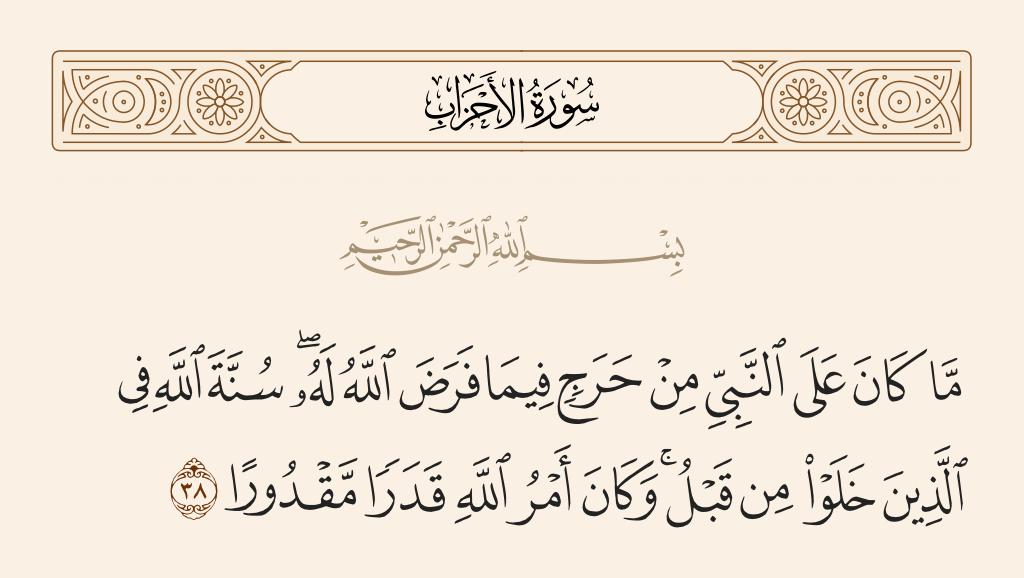 سُورَةُ الأَحْزَابِ
بِسْمِ ٱللَّهِ ٱلرَّحْمَٰنِ ٱلرَّحِيمِ
مَّا كَانَ عَلَى ٱلنَّبِىِّ مِنْ حَرَجٍ فِيمَا فَرَضَ ٱللَّهُ لَهُۥ ۖ سُنَّةَ ٱللَّهِ فِى
ٱلَّذِينَ خَلَوْا۟ مِن قَبْلُ ۚ وَكَانَ أَمْرُ ٱللَّهِ قَدَرًا مَّقْدُورًا ٣٨